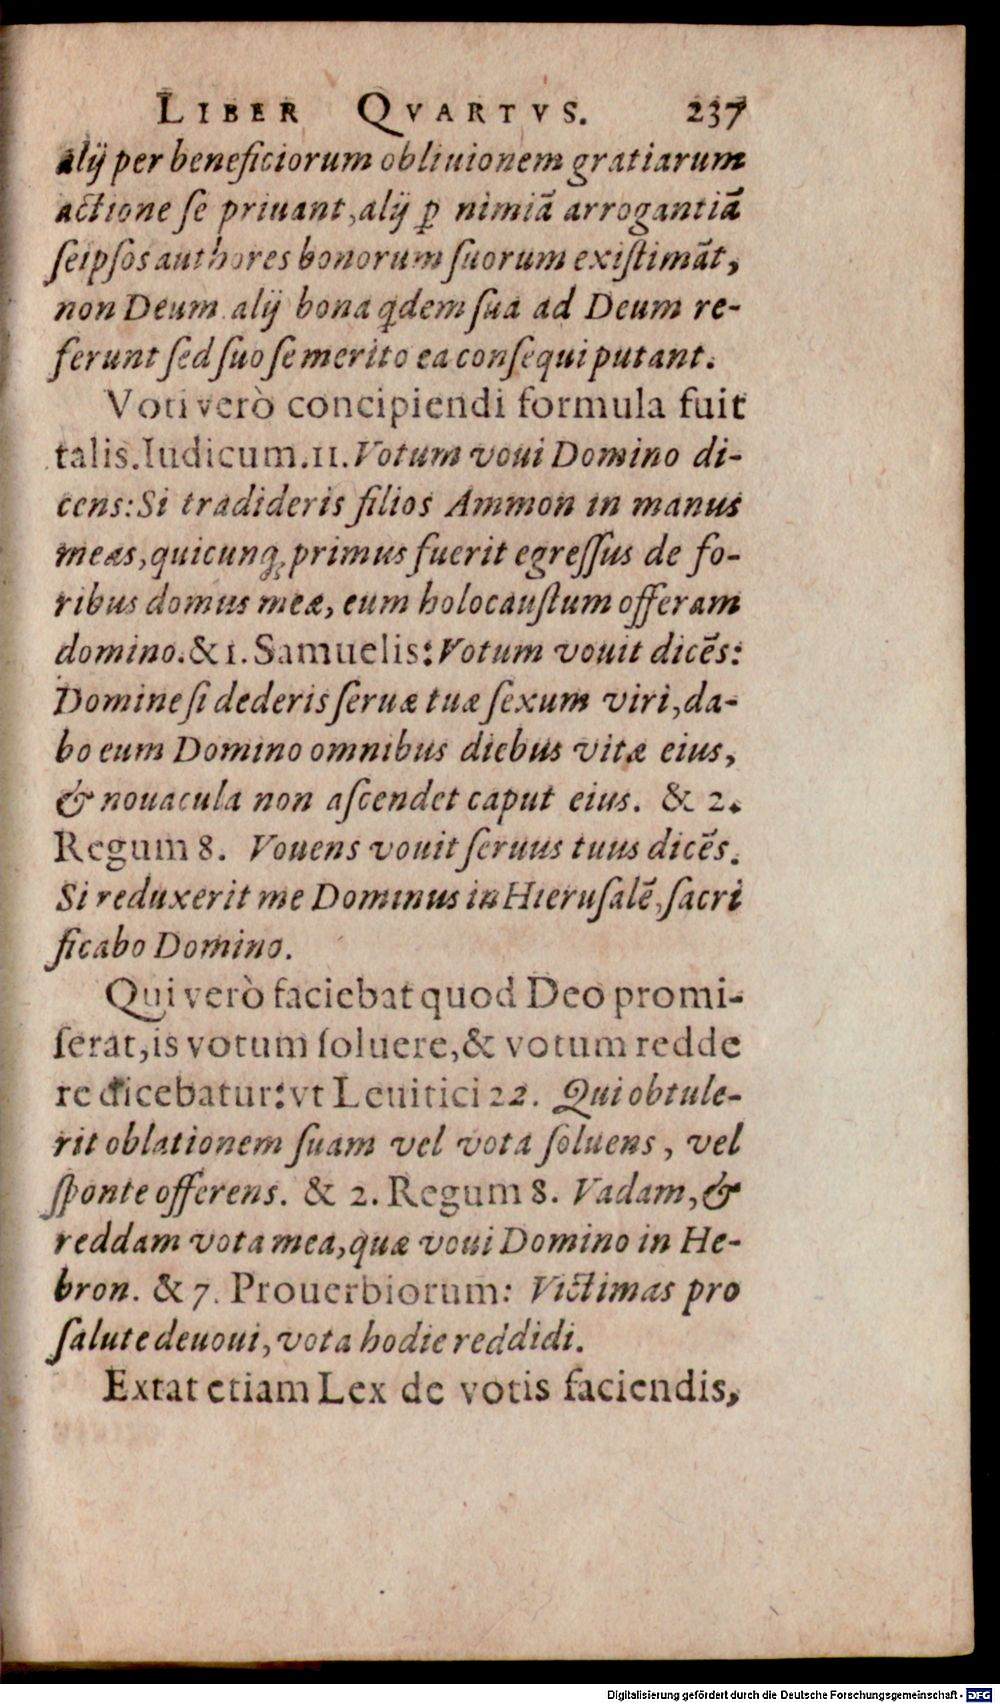 LIBER QVARTVS. 237
alij per beneficiorum obliuionem gratiarum
actione se priuant, alij ꝑ nimiã arrogantiã
seipsos authores bonorum suorum existimãt,
non Deum. alij bona qdem sua ad Deum re-
ferunt sed suo se merito ea consequi putant.
Voti verò concipiendi formula fuit
talis. Iudicum. 11. Votum voui Domino di-
cens: Si tradideris filios Ammon in manus
meas, quicunq; primus fuerit egressus de fo-
ribus domus meæ, eum holocaustum offeram
domino. & 1. Samuelis: Votum vouit dicẽs:
Domine si dederis seruæ tuæ sexum viri, da-
bo eum Domino omnibus diebus vitæ eius,
& nouacula non ascendet caput eius. & 2.
Regum 8. Vouens vouit seruus tuus dicẽs.
Si reduxerit me Dominus in Hierusalẽ, sacri
ficabo Domino.
Qui verò faciebat quod Deo promi-
serat, is votum soluere, & votum redde
re dicebatur: vt Leuitici 22. Qui obtule-
rit oblationem suam vel vota soluens, vel
sponte offerens. & 2. Regum 8. Vadam, &
reddam vota mea, quæ voui Domino in He-
bron. & 7. Prouerbiorum: Victimas pro
salute deuoui, vota hodie reddidi.
Extat etiam Lex de votis faciendis,
Digitalisierung gefördert durch die Deutsche Forschungsgemeinschaft - DFG